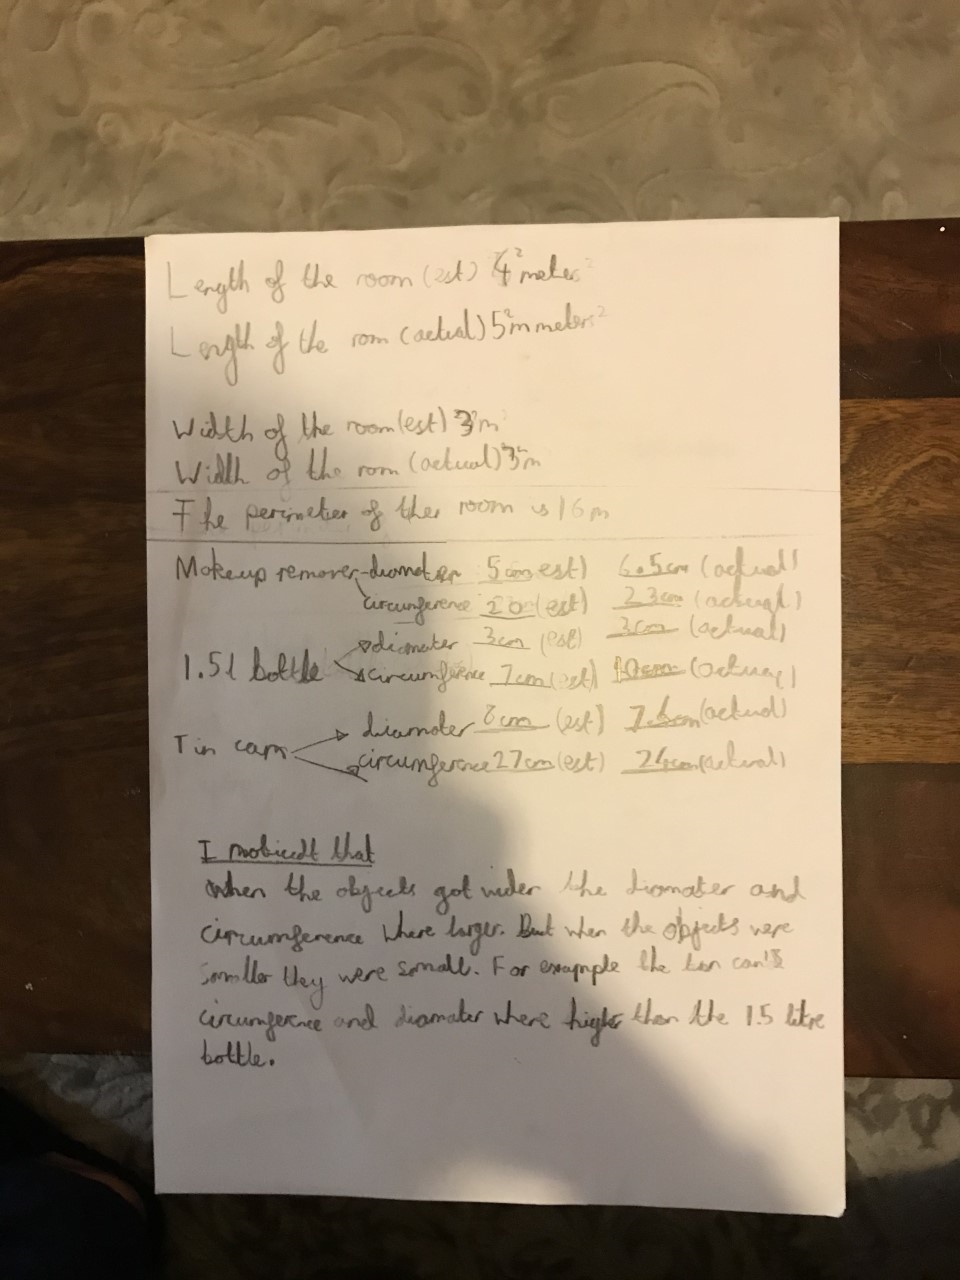 Length of the room (est) 4² metes²
Length of the rom (actual) 5²m meters²
Width of the room (est) 3²m
Width of the rom (actual) 3²m
The perimeter of ther room is 16m
Makeup remover-diamater 5cm est) 6.5cm (actual)
circunference 20 (est) 23cm (actual)
diamater 3cm (est) 3cm (actual)
1.5l bottle circumference 7cm (est) 10cm (actual)
Tin cam diamater 8cm (est) 7.6cm (actual)
circumference 27cm (est) 24cm (actual)
I that
when the objects got wider the diamater and
circumference where larger. But when the objects were
smaller they were small. For example the tin can's
circumference and diamater where higher than the 1.5 litre
bottle.